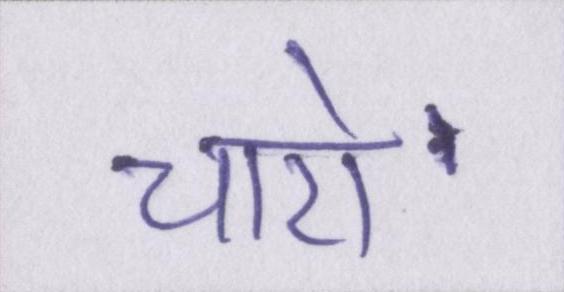 चारों